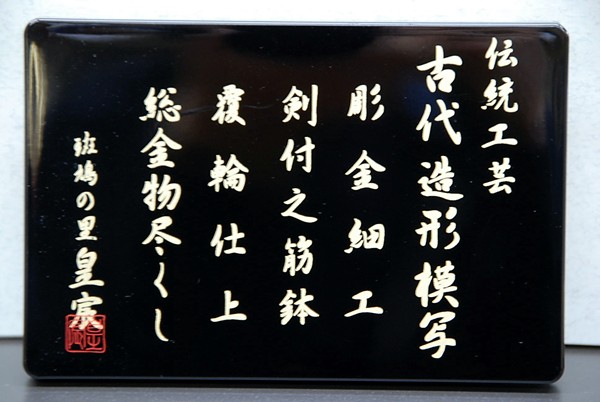 伝統工芸
古代造形模写
彫金細工
剣付之筋鉢
覆輪仕上
総金物尽くし
斑鳩の里 皇宸